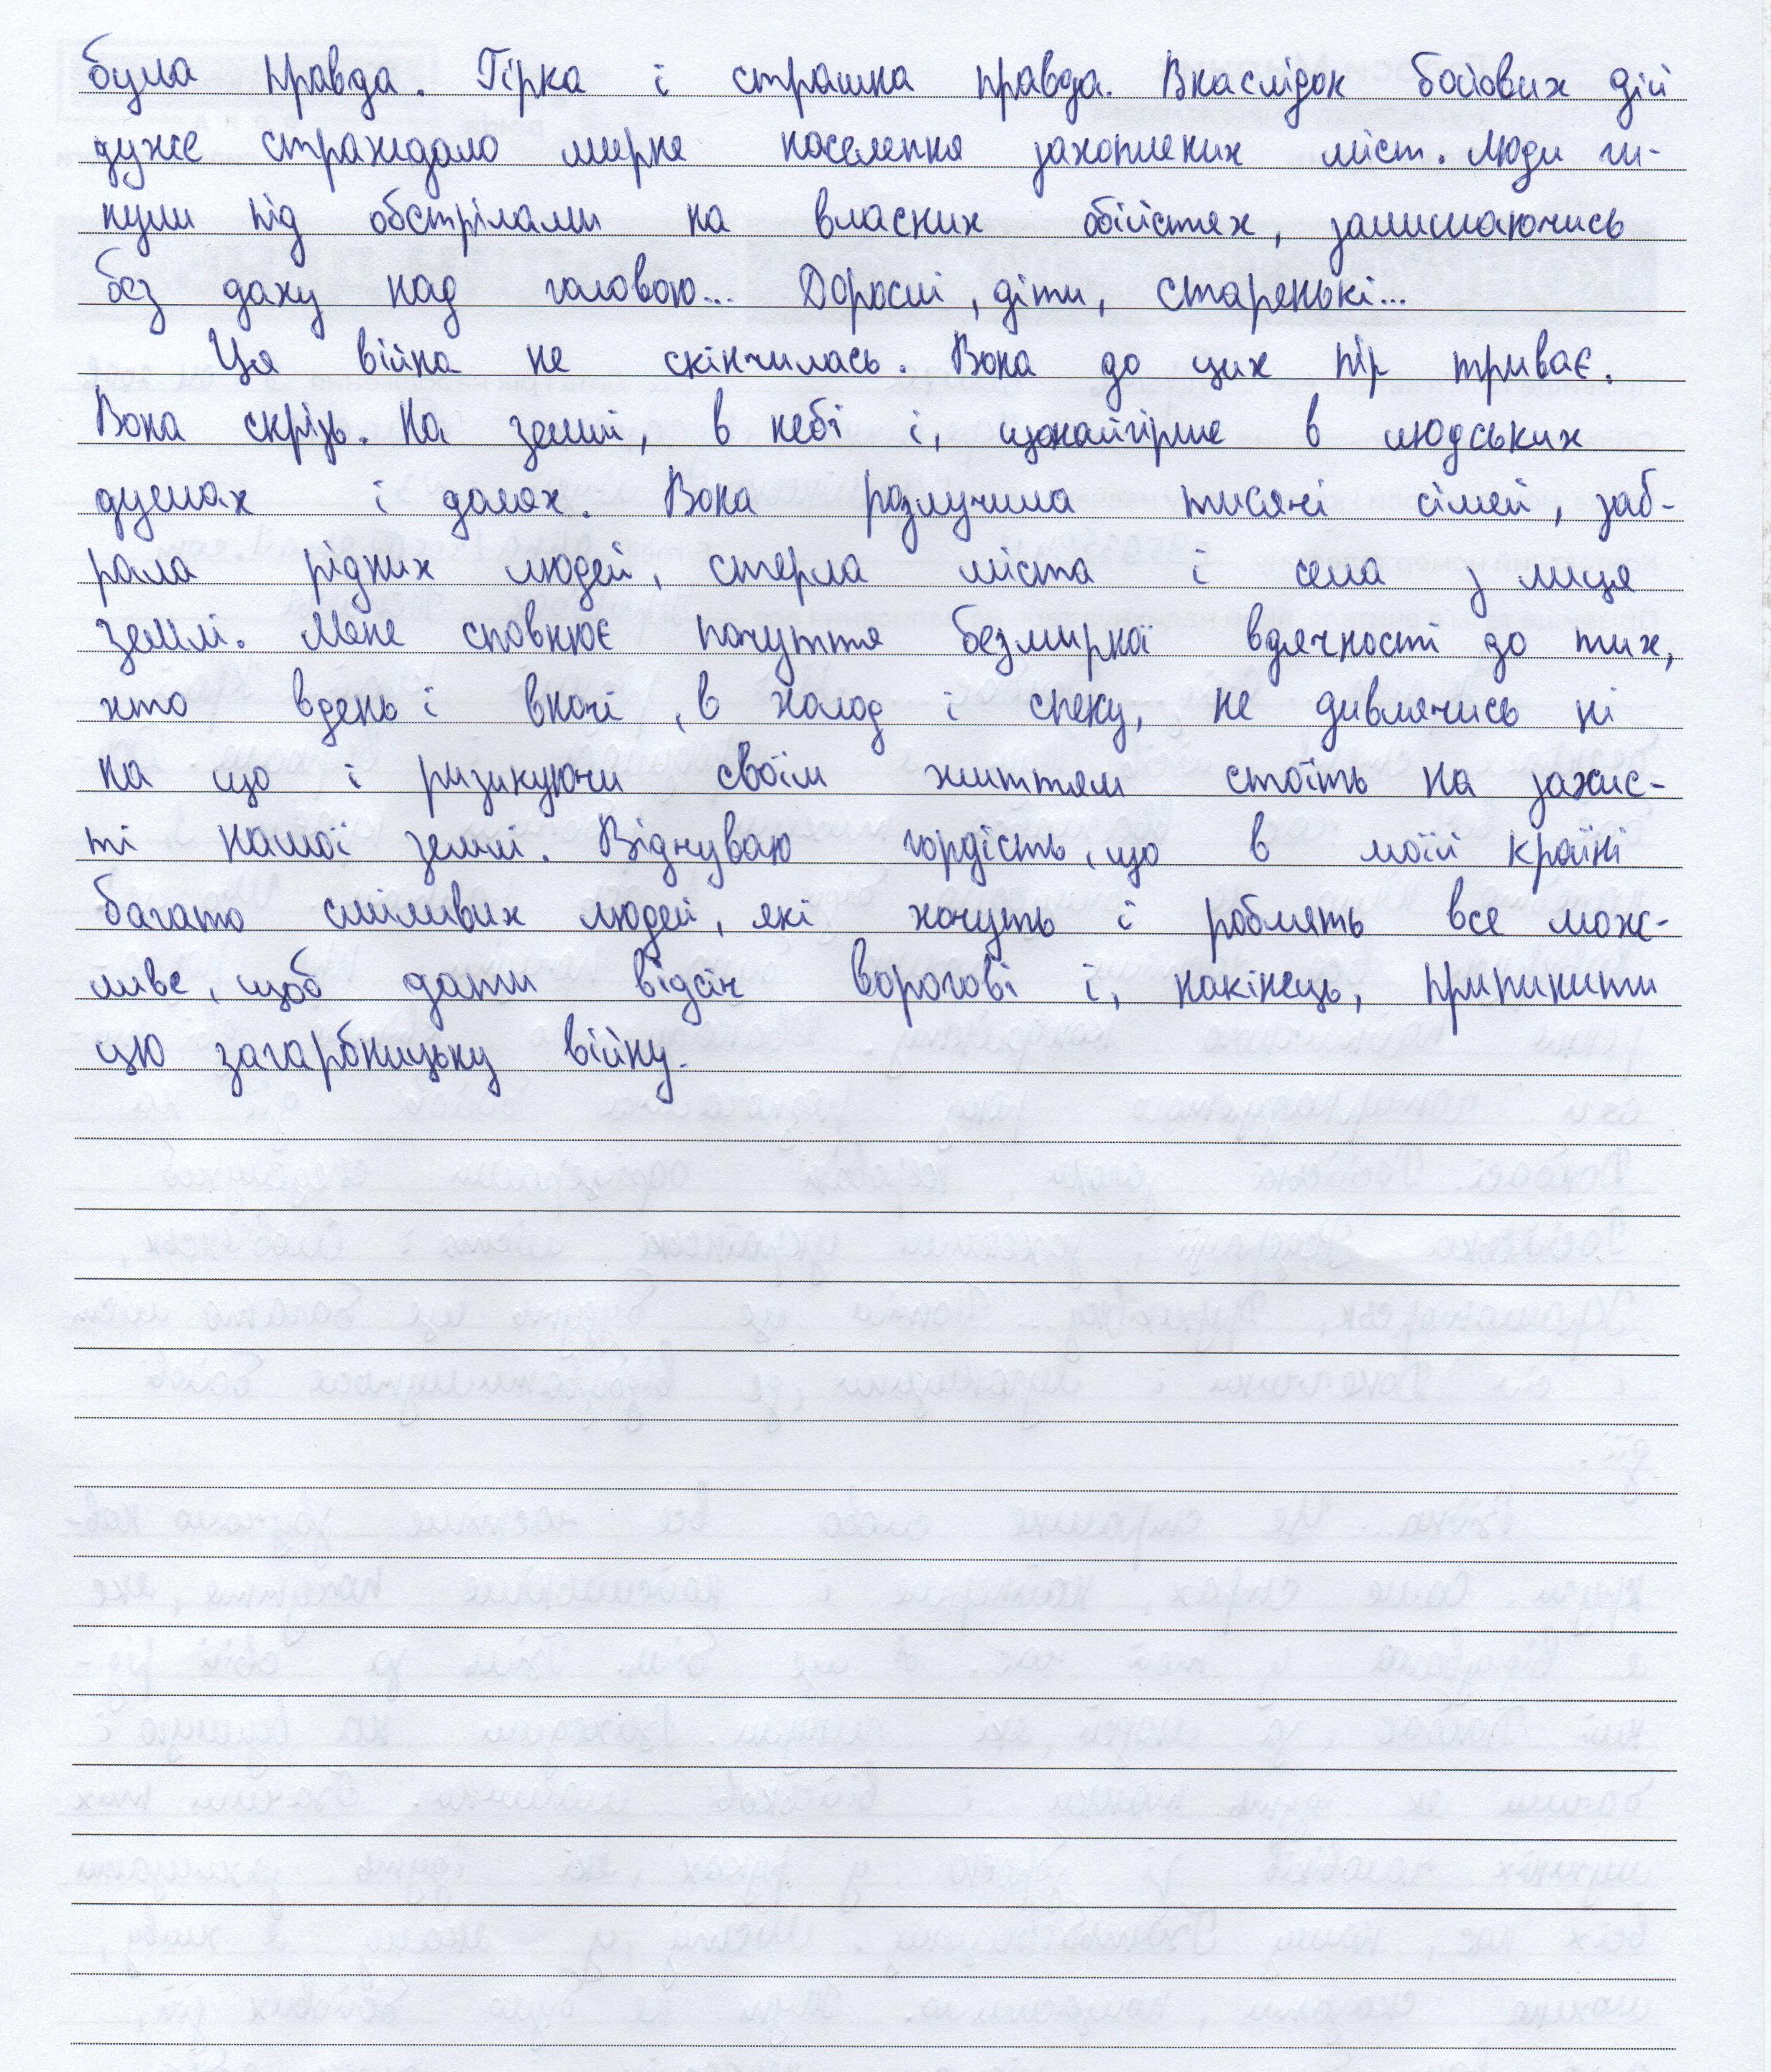 була правда. Гірка і страшна правда. Внаслідок бойових дій
дуже страждало мирне населення захоплених міст. Люди ги-
нули під обстрілами на власних обійстях, залишаючись
без даху над головою... Дорослі, діти, старенькі...
Ця війна не скінчилась. Вона до цих пір триває.
Вона скрізь. На землі, в небі і, щонайгірше в людських
душах і долях. Вона розлучила тисячі сімей, заб-
рала рідних людей, стерла міста і села з лиця
землі. Мене сповнює почуття безмирної вдячності до тих,
хто вдень і вночі, в холод і спеку, не дивлячись ні
на що і ризикуючи своїм життям стоїть на захис-
ті нашої землі. Відчуваю гордість, що в моїй країні
багато сміливих людей, які хочуть і роблять все мож-
ливе, щоб дати відсіч ворогові і, накінець, припинити
цю загарбницьку війну.